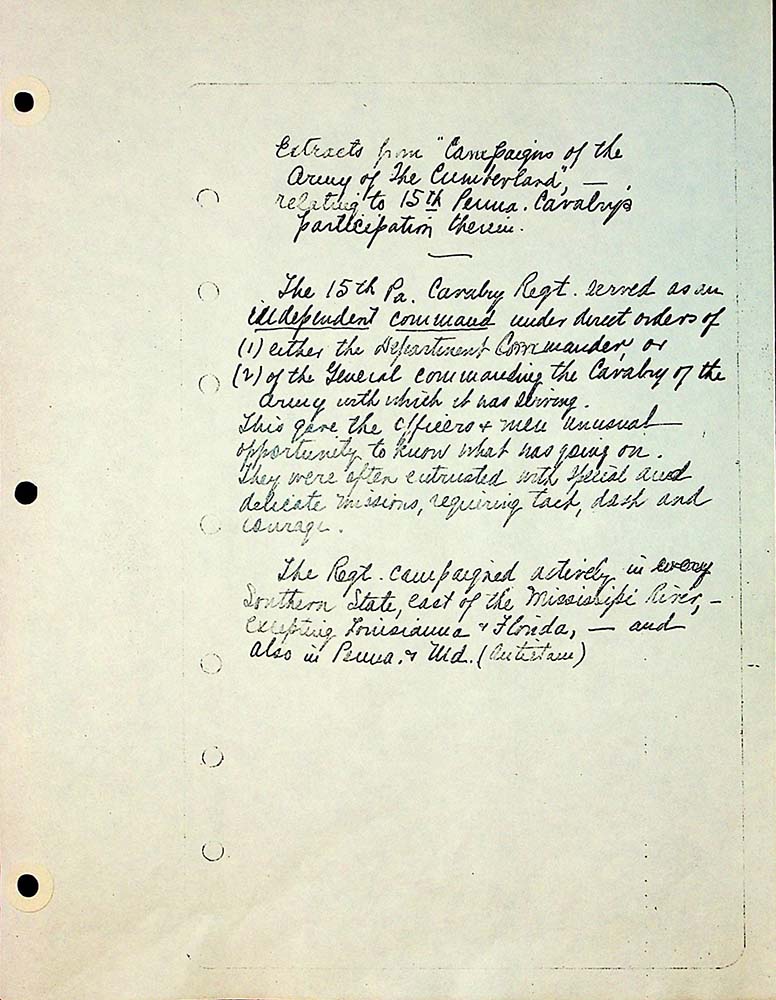 Extracts from "Campaigns of the
Army of The Cumberland", —
relating to 15th Penna. Cavalry's
participation therein.
The 15th Pa. Cavalry Regt. served as an
independent command under direct orders of
(1) either the Department Commander, or
(2) of the General commanding the Cavalry of the
Army with which it was serving.
This gave the Officers & men unusual
opportunity to know what was going on.
They were often entrusted with special and
delicate missions, requiring tact, dash and
courage.
The Regt. campaigned actively in every
Southern State, east of the Mississipi River, —
excepting Louisianna & Florida, — and
also in Penna. & Md. (Antietam)